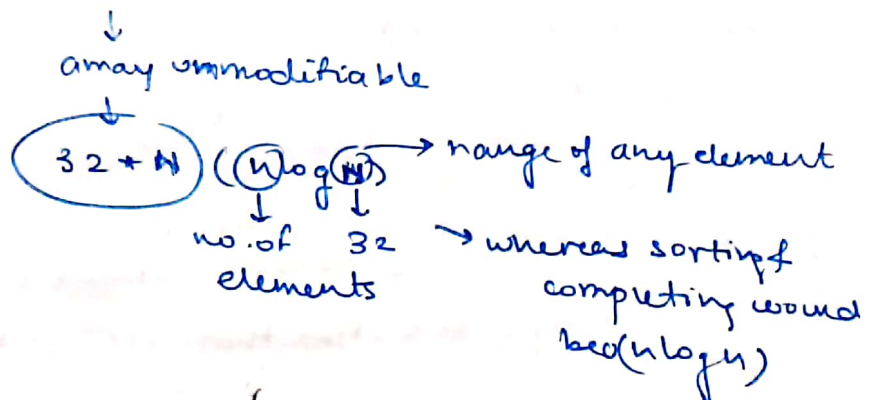 ↓
array unmodifiable
↓
32 * N (n log N) → range of any element
↓ ↓
no. of 32 → whereas sorting &
elements completing would
be o(n log n)